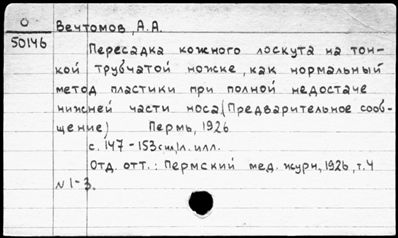 О
50146
Вечтомов, А.А.
Пересадка кожного лоскута на тон-
кой трубчатой ножке, как нормальный
метод пластики при полной недостаче
нижней части носа (Предварительное сооб-
щение) Пермь, 1926
с. 147-153 см, 1 л. илл.
Отд. отт.: Пермский мед. журн., 1926, т. 4
N 1-3.